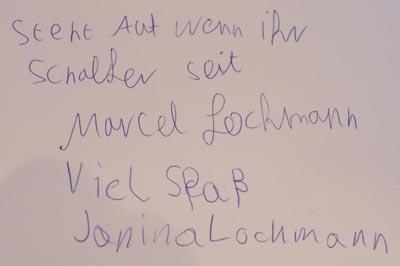 Steht Auf wenn ihr
Schalker seit
Marcel Lochmann
Viel Spaß
Janina Lochmann